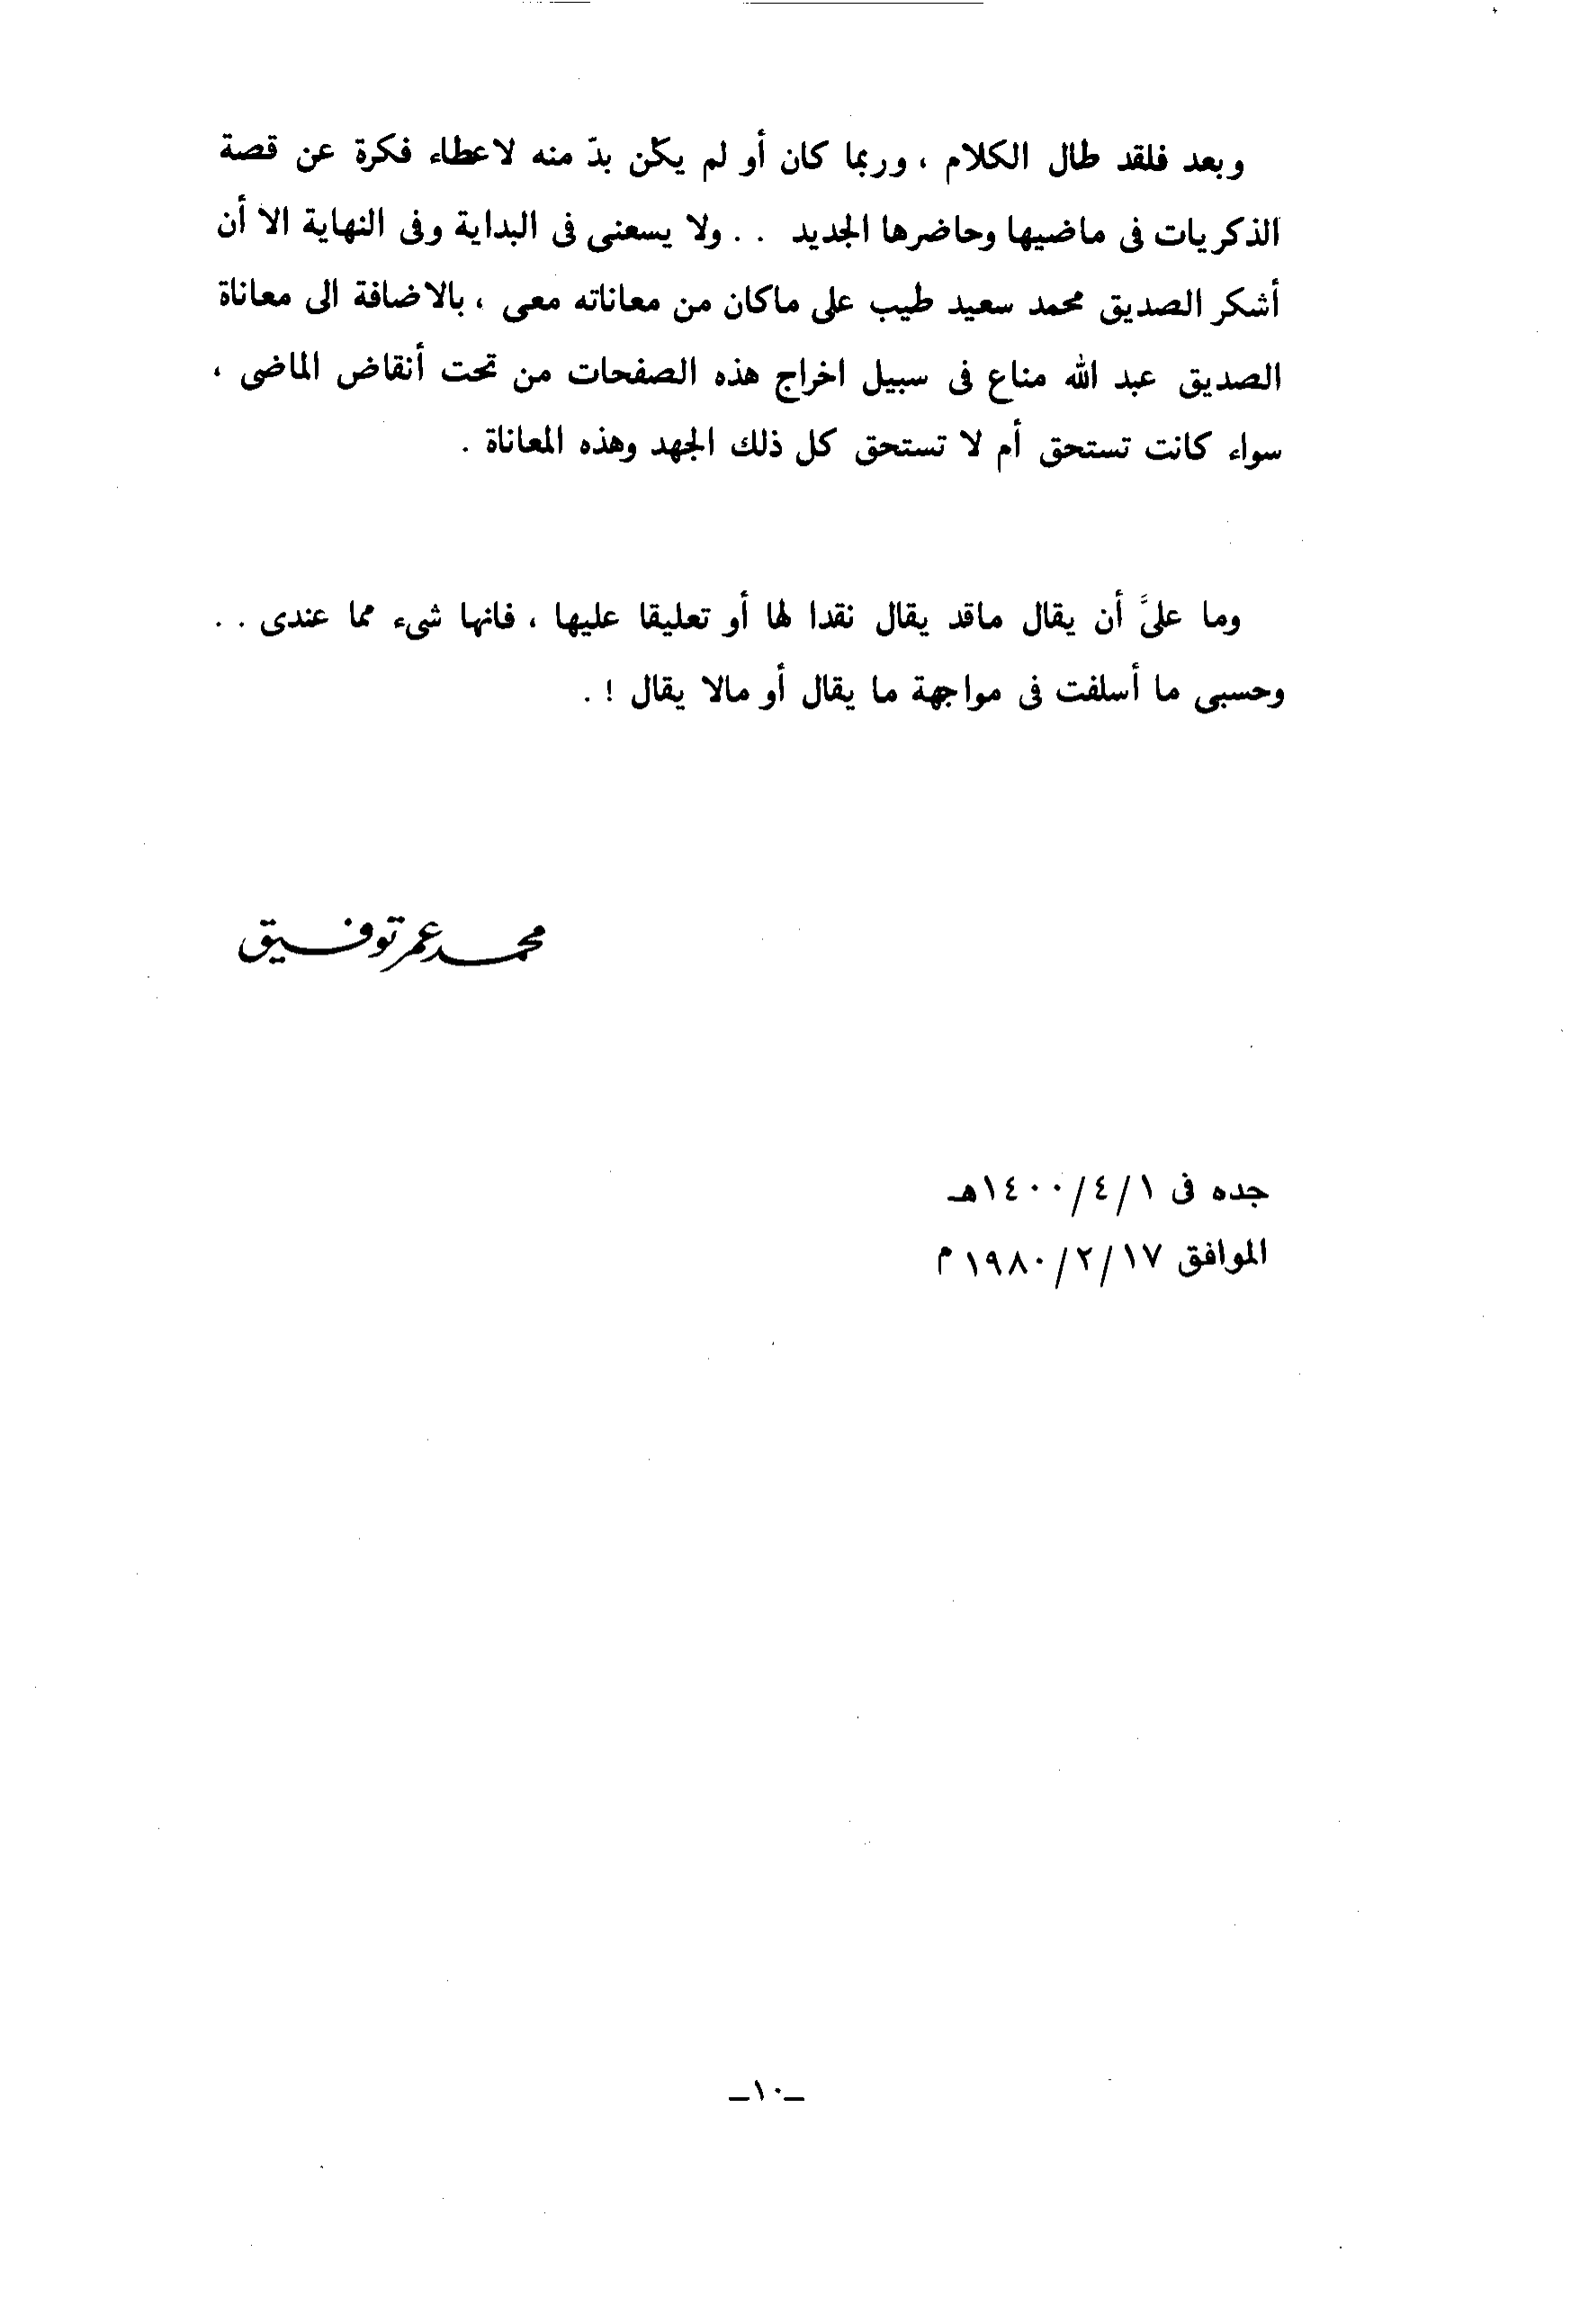 وبعد فلقد طال الكلام ، وربما كان أو لم يكن بدّ منه لاعطاء فكرة عن قصة
الذكريات فى ماضيها وحاضرها الجديد . . ولا يسعنى فى البداية وفى النهاية الا أن
أشكر الصديق محمد سعيد طيب على ماكان من معاناته معى ، بالاضافة الى معاناة
الصديق عبد الله مناع فى سبيل اخراج هذه الصفحات من تحت أنقاض الماضى ،
سواء كانت تستحق أم لا تستحق كل ذلك الجهد وهذه المعاناة .
وما علىَّ أن يقال ماقد يقال نقدا لها أو تعليقا عليها ، فانها شىء مما عندى . .
وحسبى ما أسلفت فى مواجهة ما يقال أو مالا يقال ! .
محمد عمر توفيق
جده فى ١/٤/١٤٠٠هـ
الموافق ١٧/٢/١٩٨٠ م
ـ١٠ـ